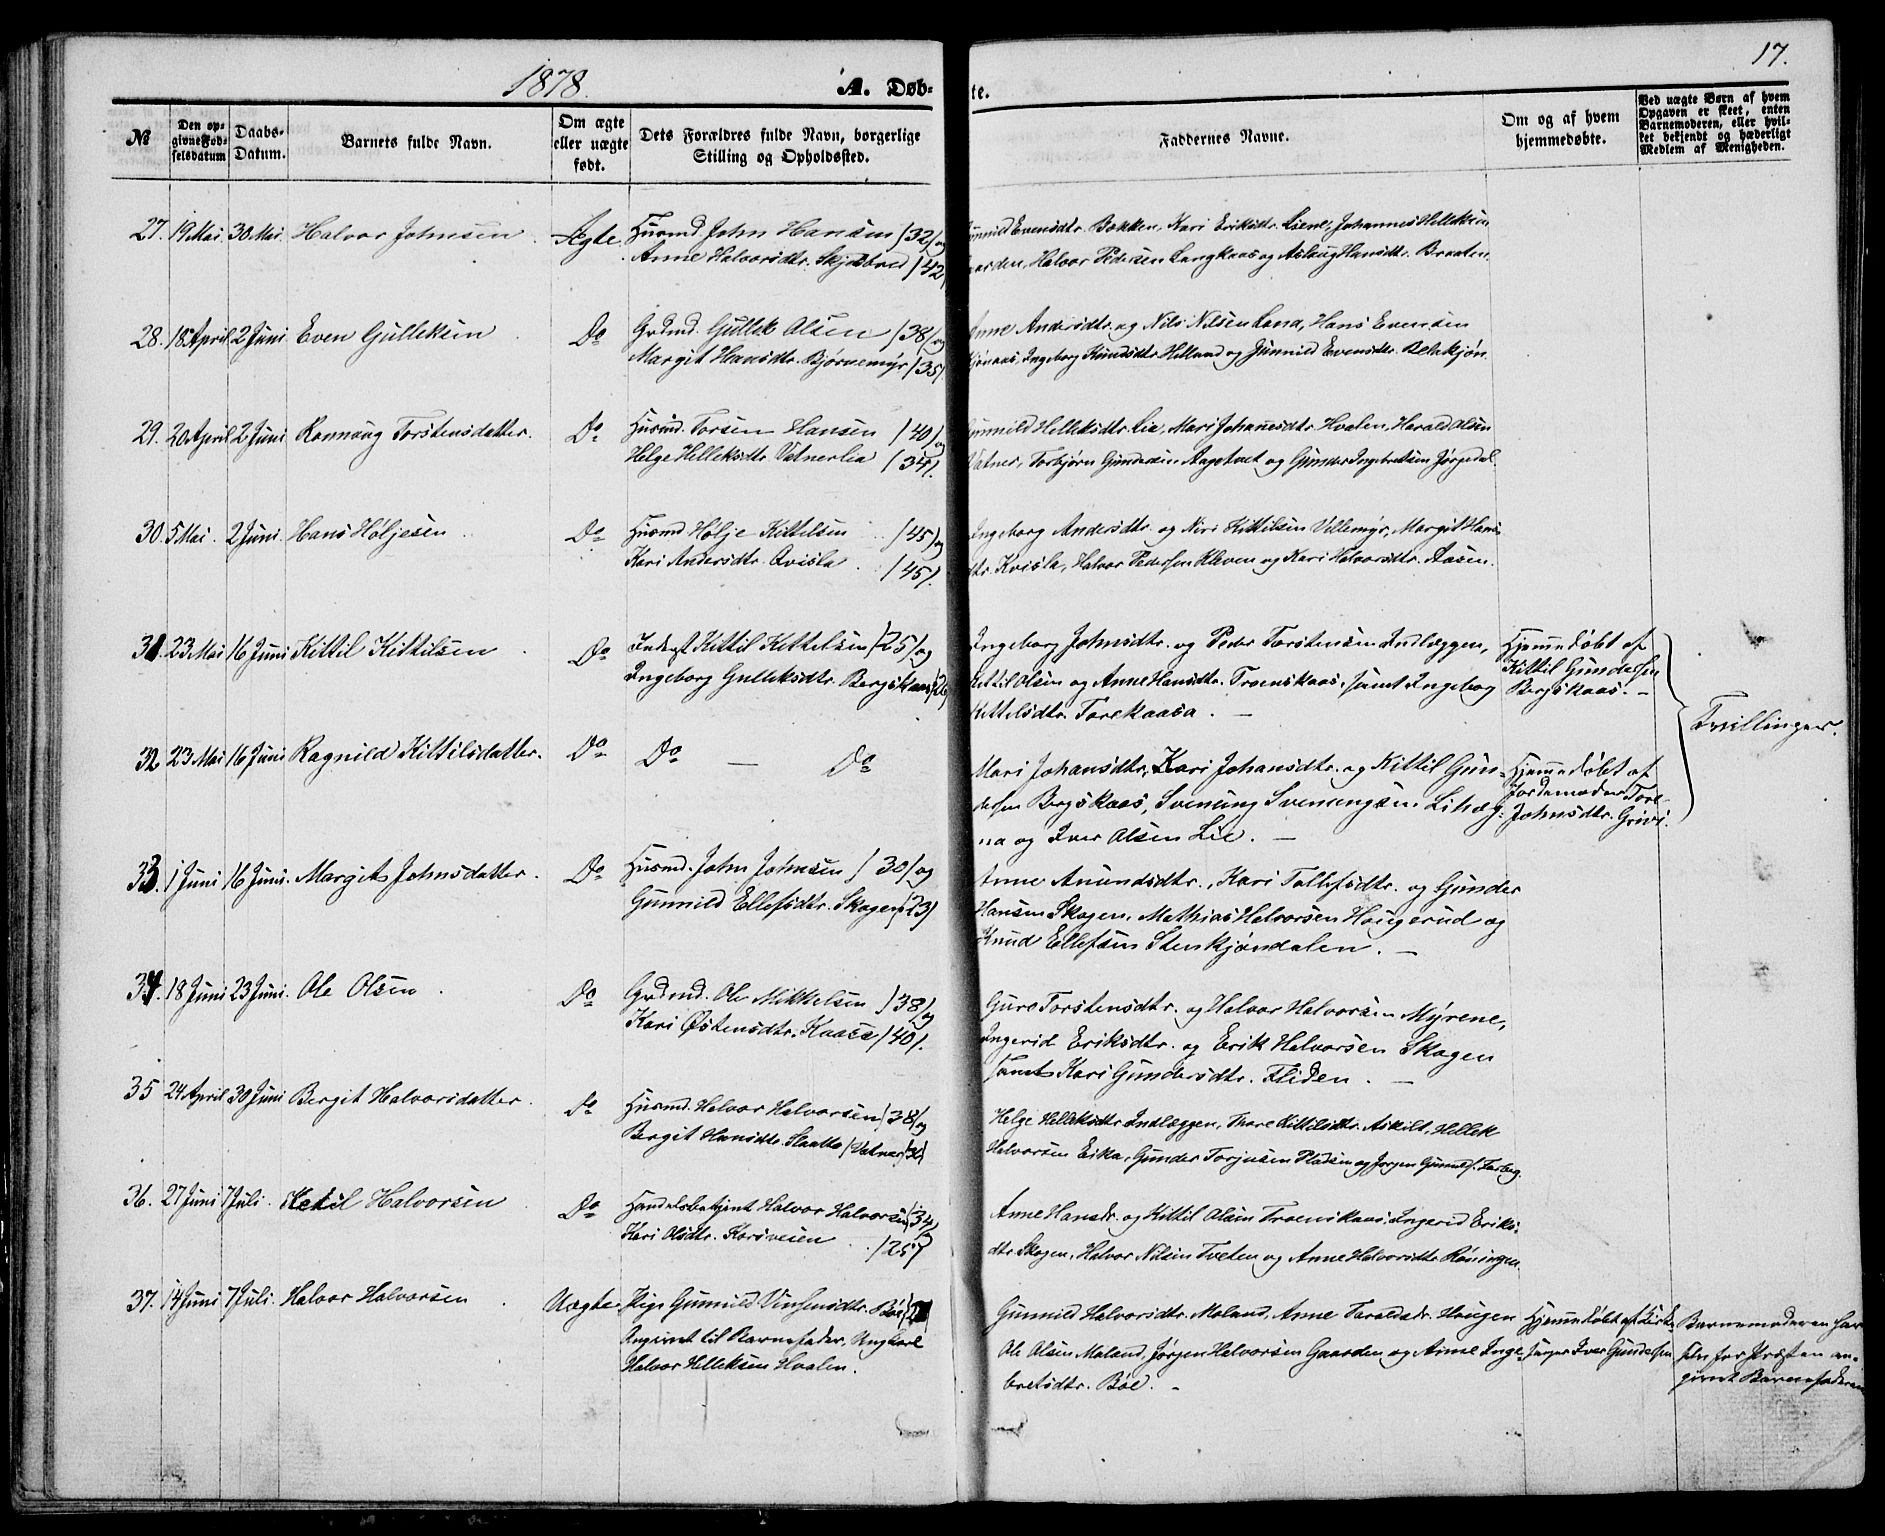 1878. A. Døb-
te. 17.
№ | Den opgivne Fødselsdatum | Daabs-Datum. | Barnets fulde Navn. | Om ægte eller uægte født. | Dets Forældres fulde Navn, borgerlige Stilling og Opholdssted. | Faddernes Navne. | Om og af hvem hjemmedøbte. | Ved uægte Børn af hvem Opgaven er skeet, enten Barnemoderen, eller hvilket bekjendt og hæderligt Medlem af Menigheden.
27. 19 Mai 30 Mai. Halvor Johnsen. Ægte. Husmd John Hansen /32/ og
Anne Halvorsdtr. Skjelbred /42/
Gunnild Evensdtr. Bækken, Kari Eriksdtr. Liene, Johannes Helleksen
Gaarden, Halvor Pedersen Langkaas og Aslaug Hansdtr. Braaten.
28. 18 April 2 Juni. Even Gulleksen. Do Grdmd. Gullek Olsen /38/ og
Margit Hansdtr. Bjørnemyr /35/
Anne Andersdtr. og Nils Nilsen Lona, Hans Evensen
Ingeborg Knudsdtr. Helland og Gunnild Evensdtr. Blekkjøn.
29. 20 April 2 Juni. Ronnaug Torstensdatter. Do Husmd. Torsen Hansen /40/ og
Helge Helleksdtr Vatnerlia /34/.
Gunnild Helleksdtr. Lia, Mari Johanesdtr. Hvalen, Harald Olsen
Vatner, Torbjørn Gundersen Aagetveit og Gunder Ingebretsen Jørgedal.
30. 5 Mai. 2 Juni. Hans Høljesen. Do Husmd Hølje Kittilsen /45/ og
Kari Andersdtr. Qvisla. /45/.
Ingeborg Andersdtr. og Niri Kittilsen Villemyr, Margit Hans-
dtr. Kvisla, Halvor Pedersen Kleven og Kari Halvorsdtr. Aasen.
31. 23 Mai 16 Juni Kittil Kittilsen. Do Inderst Kittil Kittilsen /25/ og
Ingeborg Gulleksdtr. Bergskaas /26/
Ingeborg Johnsdtr. og Peder Torstensen Indlæggen,
Kittil Olsen og Anne Hansdtr. Troenskaas, samt Ingeborg
Kittilsdtr. Torekaasa. —
Hjemmedøbt af
Kittil Gundersen
Bergskaas. —
Tvillinger.
32 23 Mai 16 Juni Ragnild Kittilsdatter. Do Do — Do
Mari Johansdtr., Kari Johansdtr. og Kittil Gun-
dersen Bergskaas, Svenung Svenungsen Lihæg-
na og Iver Olsen Lie. —
Hjemmedøbt af
Jordemoder Tore
Johnsdtr. Grivi.
33. 1 Juni 16 Juni. Margit Johnsdatter. Do Husmd. John Johnsen /30/ og
Gunnild Ellefsdtr. Skogen /23/
Anne Anundsdtr., Kari Tollefsdtr. og Gunder
Hansen Skogen, Mathias Halvorsen Haugerud og
Knud Ellefsen Stenkjøndalen. —
34. 18 Juni 23 Juni. Ole Olsen. Do Grdmd. Ole Mikkelsen /38/ og
Kari Østensdtr. Kaasa /40/.
Guro Torstensdtr. og Halvor Halvorsen Myrene,
Ingerid Eriksdtr. og Erik Halvorsen Skogen
samt Kari Gundersdtr. Fliden. —
35 24 April 30 Juni Bergit Halvorsdatter. Do Husmd. Halvor Halvorsen /38/ og
Bergit Hansdtr. Slaatta /Vatnar/
Helge Helleksdtr Indlæggen, Thore Kittilsdtr. Askilt, Hellek
Halvorsen Eika, Gunder Torjusen Pladsen og Jørgen
36. 27 Juni 7 Juli. Ketil Halvorsen. Do Handelsbetjent Halvor Halvorsen /34/ og
Kari Olsdtr. Korsveien /25/
Anne Hansdr. og Kittil Olsen Troenskaas, Ingerid Eriks-
dtr. Skogen, Halvor Nilsen Tveten og Anne Halvorsdtr. Røningen.
37. 14 Juni 7 Juli. Halvor Halvorsen. Uægte Pige Gunnild Vinsensdtr. Böe
Angivet til Barnefader, Ungkarl
Halvor Helleksen Hvalen.
Gunnild Halvorsdtr. Moland, Anne Taraldsdr. Haugen
Ole Olsen Moland, Jørgen Halvorsen Gaarden og Anne Inge-
bretsdtr. Böe. —
Hjemmedøbt af Kirke-
sanger Iver Gundersen
Barnemoderen har
selv for Præsten an-
givet Barnefaderen